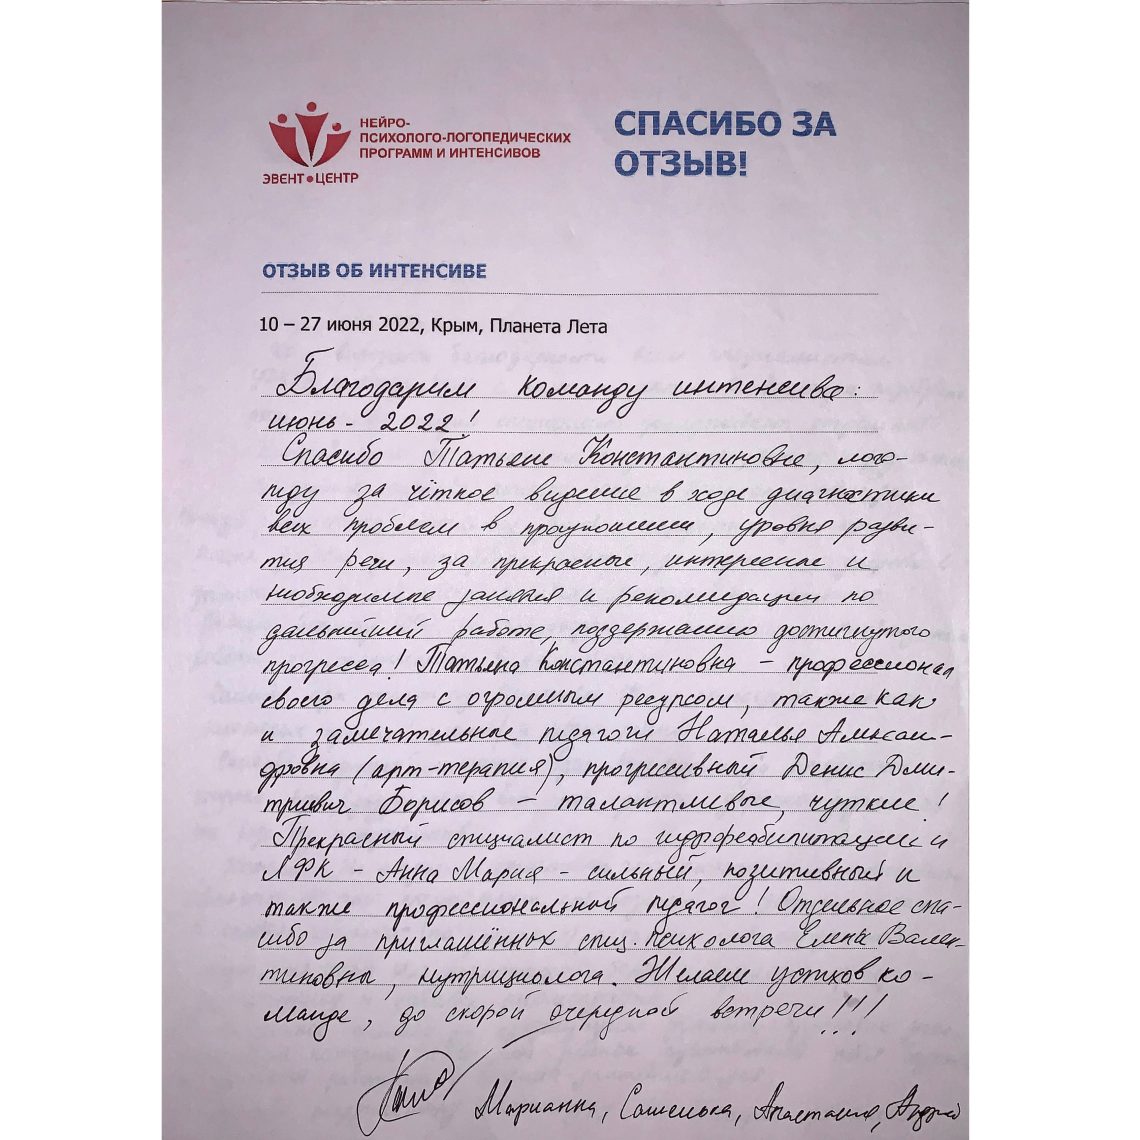 НЕЙРО-
ПСИХОЛОГО-ЛОГОПЕДИЧЕСКИХ
ПРОГРАММ И ИНТЕНСИВОВ
ЭВЕНТ•ЦЕНТР
СПАСИБО ЗА
ОТЗЫВ!
ОТЗЫВ ОБ ИНТЕНСИВЕ
10 – 27 июня 2022, Крым, Планета Лета
Благодарим команду интенсива:
июнь - 2022!
Спасибо Татьяне Константиновне, лого-
педу за чёткое видение в ходе диагностики
всех проблем в произношении, уровня разви-
тия речи, за прекрасные, интересные и
необходимые занятия и рекомендации по
дальнейшей работе, поддержанию достигнутого
прогресса! Татьяна Константиновна – профессионал
своего дела с огромным ресурсом, также как
и замечательные педагоги Наталья Алексан-
дровна (арт-терапия), прогрессивный Денис Дми-
триевич Борисов – талантливые, чуткие!
Прекрасный специалист по гидрореабилитации и
ЛФК - Анна Мария - сильный, позитивный и
также профессиональный педагог! Отдельное спа-
сибо за приглашённых спец. психолога Елену Вален-
тиновны, нутрициолога. Желаем успехов ко-
манде, до скорой очередной встречи!!!
Марианна, Сашенька, Анастасия, Андрей